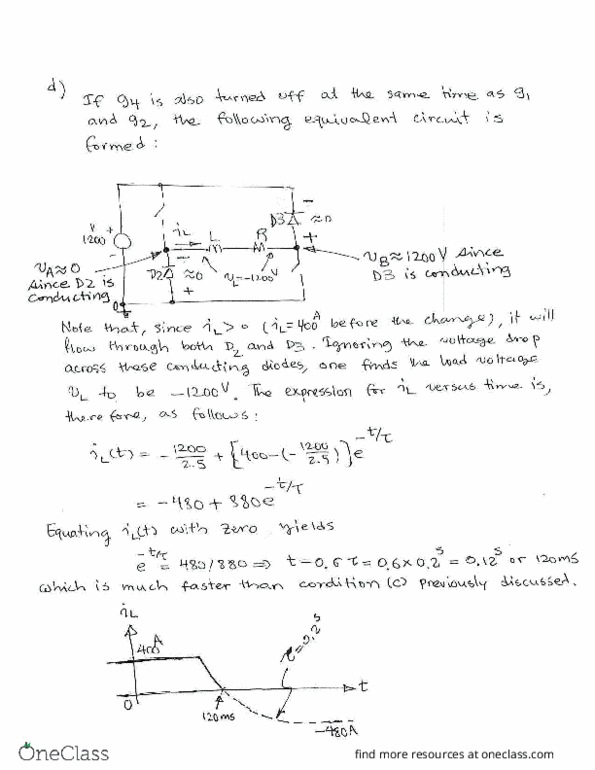 d)
If g4 is also turned off at the same time as g1
and g2, the following equivalent circuit is
formed:
1200 V
+
-
iL
L
R
D3
≈0
-
+
D2
≈0
-
+
vL=-1200V
0
vA≈0
since D2 is
conducting
vB≈1200 V since
D3 is conducting
Note that, since iL>0 (iL=400A before the change), it will
flow through both D2 and D3. Ignoring the voltage drop
across these conducting diodes, one finds the load voltage
vL to be -1200V. The expression for iL versus time is,
therefore, as follows:
iL(t) = -1200/2.5 + [400-(-1200/2.5)]e^-t/τ
= -480+880e^-t/τ
Equating iL(t) with zero yields
e^-t/τ = 480/880 ⇒ t=0.6τ=0.6×0.2s=0.12s or 120ms
which is much faster than condition (c) previously discussed.
iL
400A
τ=0.2s
t
0
120ms
-480A
OneClass
find more resources at oneclass.com